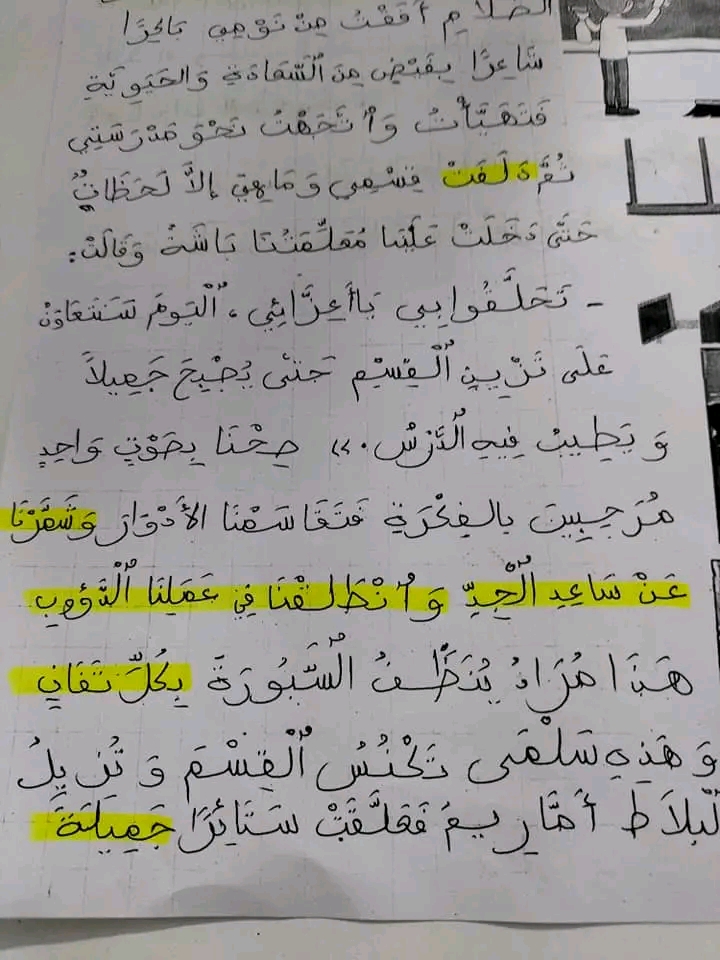 الظَّلَامِ أَفَقْتُ مِنْ نَوْمِي بَاكِرًا
شَاعِرًا بِفَيْضٍ مِنَ السَّعَادَةِ وَالحَيَوِيَّةِ
فَتَهَيَّأْتُ وَاتَّجَهْتُ نَحْوَ مَدْرَسَتِي
ثُمَّ دَلَفَتْ قِسْمِي وَمَا هِيَ إِلَّا لَحَظَاتٌ
حَتَّى دَخَلَتْ عَلَيْنَا مُعَلِّمَتُنَا بَاشَّةً وَقَالَتْ:
- تَحَلَّقُوا بِي يَا أَعِزَّائِي، الْيَوْمَ سَنَتَعَاوَنُ
عَلَى تَزْيِينِ الْقِسْمِ حَتَّى يُصْبِحَ جَمِيلاً
وَ يَطِيبُ فِيهِ الدَّرْسُ.» صِحْنَا بِصَوْتٍ وَاحِدٍ
مُرَحِّبِينَ بِالفِكْرَةِ فَتَقَاسَمْنَا الأَدْوَارَ وَشَمَّرْنَا
عَنْ سَاعِدِ الْجِدِّ وَانْطَلَقْنَا فِي عَمَلِنَا الدَّؤُوبِ
هَذَا مُرَادُ يُنَظِّفُ السَّبُورَةَ بِكُلِّ تَفَانٍ
وَ هَذِهِ سَلْمَى تَكْنُسُ الْقِسْمَ وَ تُزِيلُ
لْبَلَاطَ أَمَّا رِيمُ فَعَلَّقَتْ سَتَائِرًا جَمِيلَةً